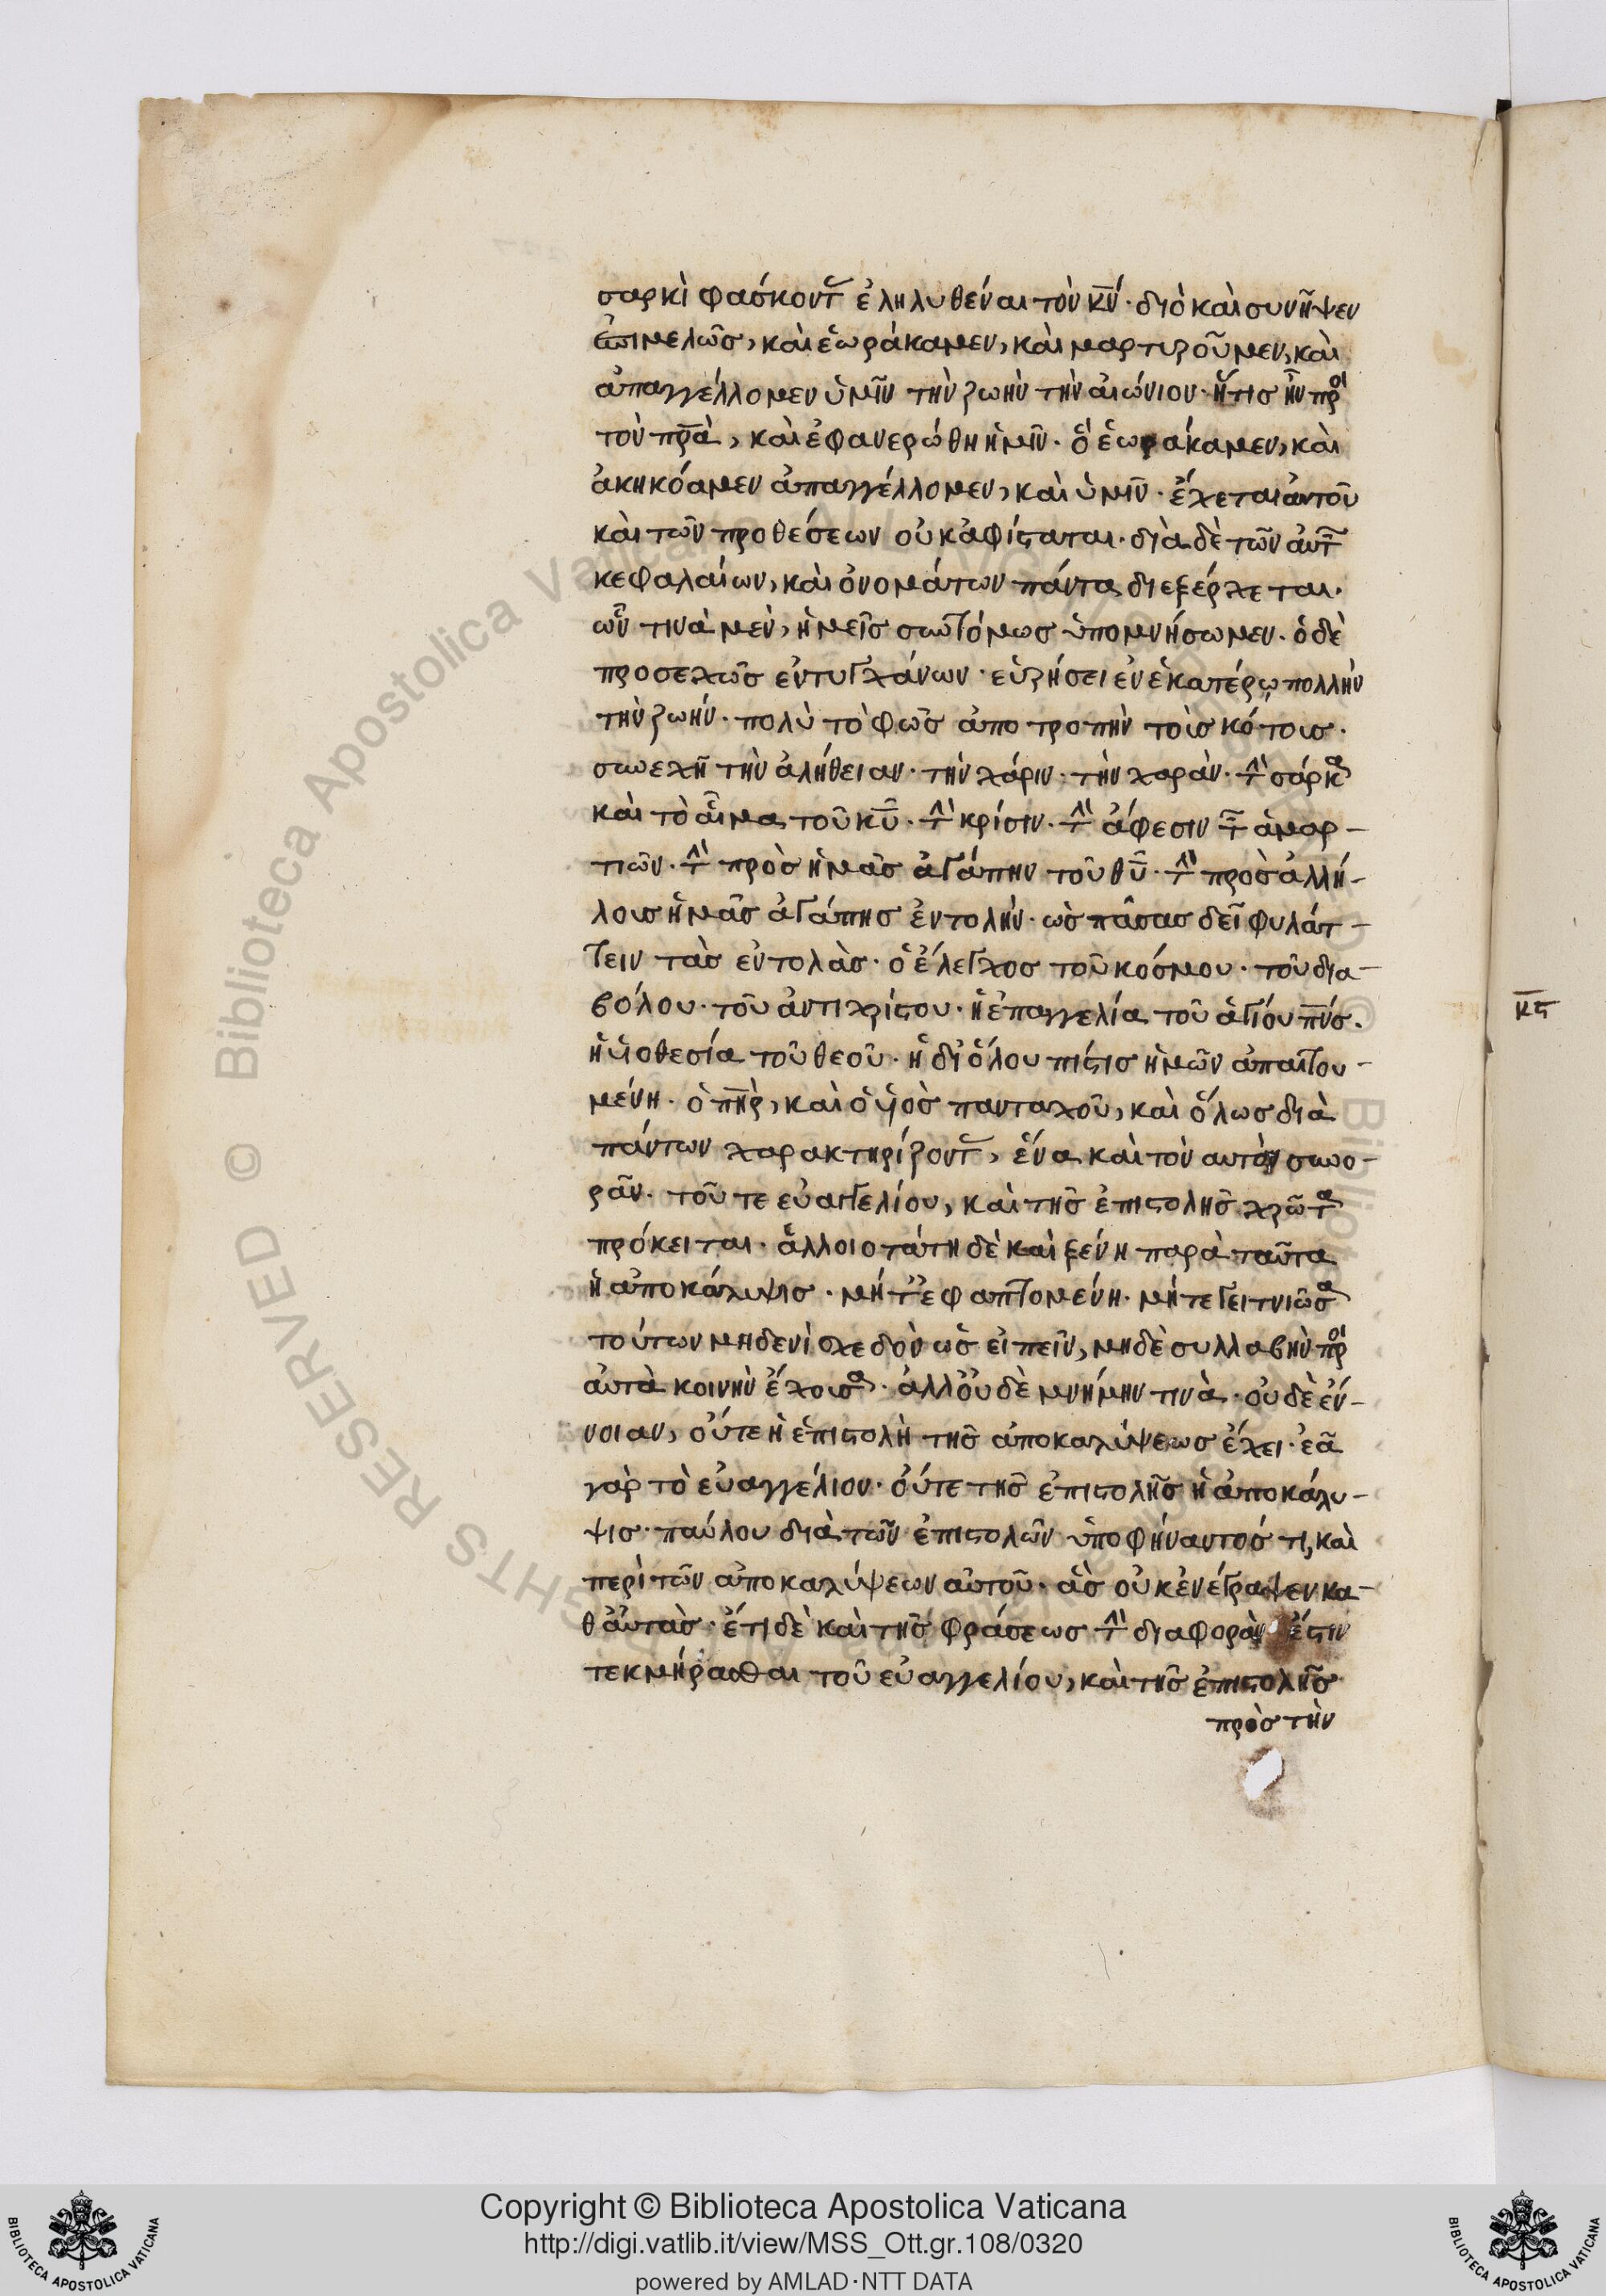 σαρκὶ φάσκοντ ἐληλυθέναι τὸν κν· διὸ καὶ συνῆψεν
ἐπιμελῶσ, καὶ ἑωράκαμεν, καὶ μαρτυροῦμεν, καὶ
ἀπαγγέλλομεν ὑμῖν τὴν ζωὴν τὴν αἰώνιον· ἥτισ ἦν πρ
τὸν πρα, καὶ ἐφανερώθη ἡμῖν· ὃ ἑωράκαμεν, καὶ
ἀκηκόαμεν ἀπαγγέλλομεν, καὶ ὑμῖν· ἔχεται αὐτοῦ
καὶ τῶν προθέσεων οὐκ ἀφίσταται· διὰ δὲ τῶν αὐτ
κεφαλαίων, καὶ ὀνομάτων πάντα διεξέρχεται·
ὧν τινὰ μὲν, ἡμεῖσ συντόμωσ ὑπομνήσωμεν· ὁ δὲ
προσεχῶσ ἐντυγχάνων· εὑρήσει ἐν ἑκατέρῳ πολλὴν
τὴν ζωήν· πολὺ τὸ φῶσ ἀποτροπὴν τοῖσκότουσ·
συνεχῆ τὴν ἀλήθειαν· τὴν χάριν· τὴν χαρὰν· τ σάρκα
καὶ τὸ αἷμα τοῦ κυ· τ κρίσιν· τ ἄφεσιν τ ἁμαρ-
τιῶν· τ πρὸσ ἡμᾶσ ἀγάπην τοῦ θυ· τ πρὸσ ἀλλή-
λουσ ἡμᾶσ ἀγάπησ ἐντολήν· ὡσ πάσασ δεῖ φυλάτ-
τειν τὰσ ἐντολὰσ· ὁ ἔλεγχοσ τοῦ κόσμου· τοῦ δια-
βόλου· τοῦ ἀντιχρίστου· ἡ ἐπαγγελία τοῦ ἁγίου πνσ·
ἡ υἱοθεσία τοῦ θεοῦ· ἡ δι' ὅλου πίστισ ἡμῶν ἀπαιτου-
μένη· ὁ πηρ, καὶ ὁ υἱὸσ πανταχοῦ, καὶ ὅλωσ διὰ
πάντων χαρακτηρίζοντ, ἕνα καὶ τὸν αὐτὸν συνο-
ρᾶν· τοῦ τε εὐαγγελίου, καὶ τῆσ ἐπιστολῆσ χρῶτα
πρόκειται· ἀλλοιοτάτη δὲ καὶ ξένη παρὰ ταῦτα
ἡ ἀποκάλυψισ· μήτ' ἐφαπτομένη· μήτε γειτνιῶσα
τούτων μηδενὶ σχεδὸν ὡσ εἰπεῖν, μηδὲ συλλαβὴν πρ
αὐτὰ κοινὴν ἔχουσα· ἀλλ' οὐδὲ μνήμην τινὰ· οὐδὲ ἔν-
νοιαν, οὔτε ἡ ἐπιστολὴ τῆσ ἀποκαλύψεωσ ἔχει· ἐᾶ
γὰρ τὸ εὐαγγέλιον· οὔτε τῆσ ἐπιστολῆσ ἡ ἀποκάλυ-
ψισ· παύλου διὰ τῶν ἐπιστολῶν ὑποφήναντόσ τι, καὶ
περὶ τῶν ἀποκαλύψεων αὐτοῦ· ἃσ οὐκ ἐνέγραψεν κα-
θ' αὑτὰσ· ἔτι δὲ καὶ τῆσ φράσεωσ τ διαφορὰν ἔστιν
τεκμήρασθαι τοῦ εὐαγγελίου, καὶ τῆσ ἐπιστολῆσ
πρὸσ τὴν
κϛ
Copyright © Biblioteca Apostolica Vaticana
http://digi.vatlib.it/view/MSS_Ott.gr.108/0320
powered by AMLAD·NTT DATA